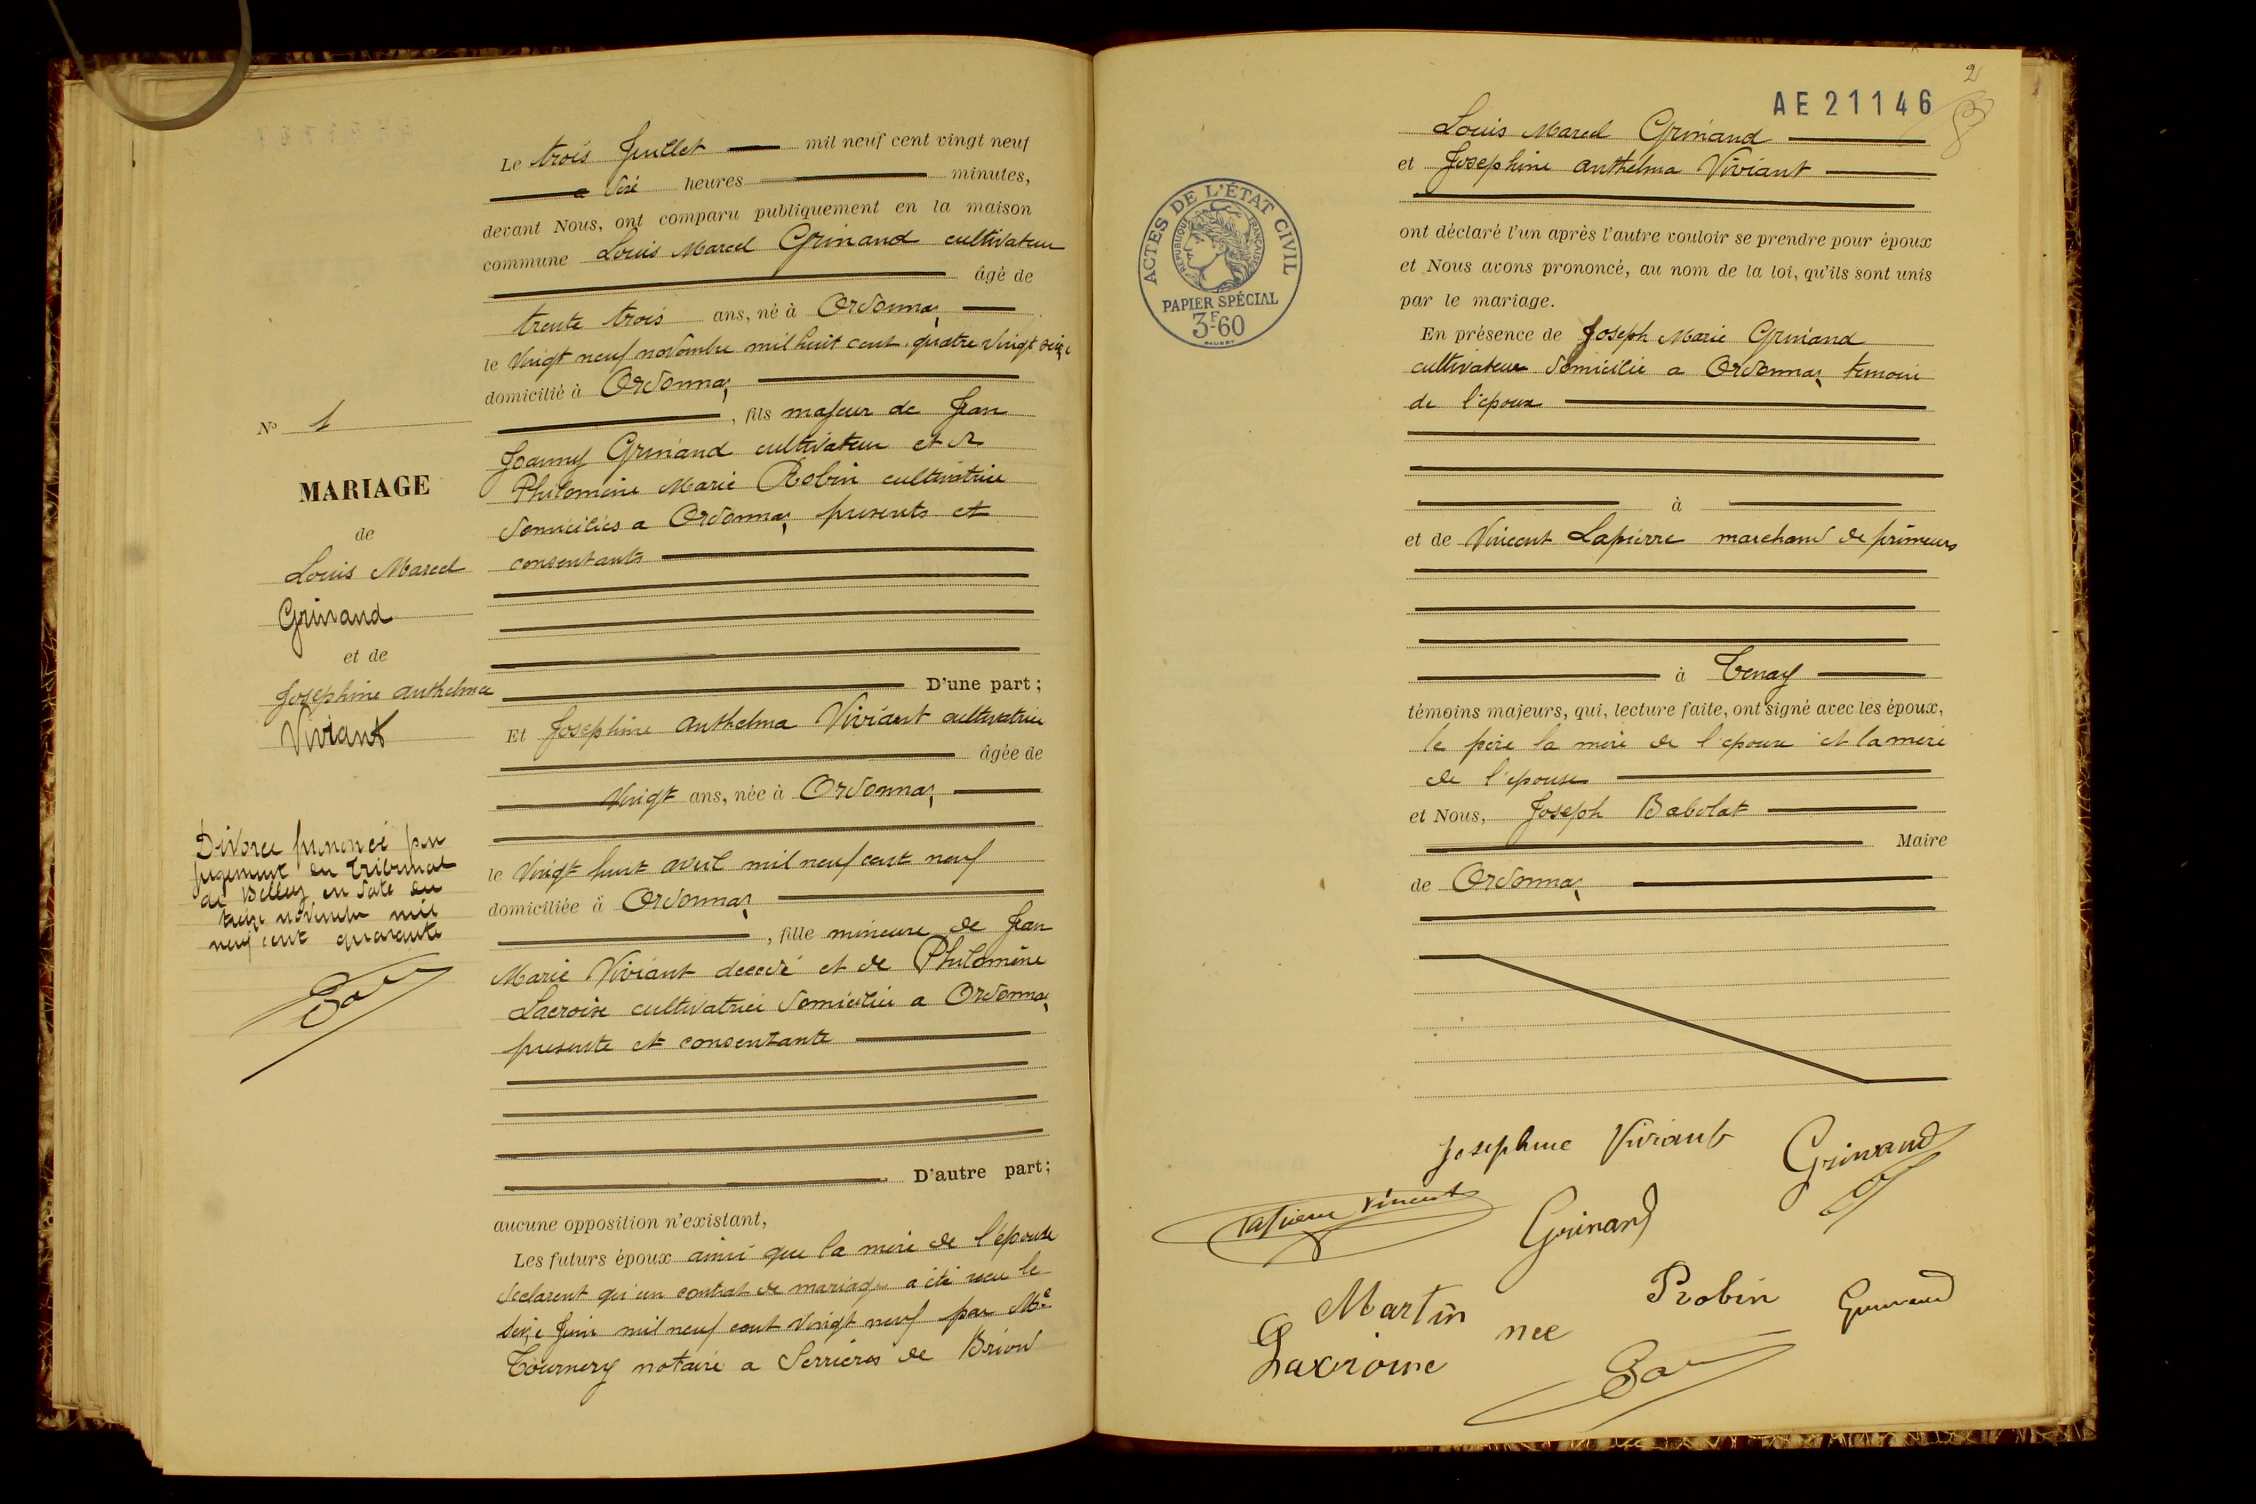 Le trois Juillet mil neuf cent vingt neuf
a dixé heures minutes,
devant Nous, ont comparu publiquement en la maison
commune Louis Marcel Grinand cultivateur
âgé de
trente trois ans, né à Ordonnaz
le vingt neuf novembre mil huit cent quatre vingt seize
domicilié à Ordonnaz
, fils majeur de Jean
Joanny Grinand cultivateur et de
Philomène Marie Robin cultivatrice
domiciliés a Ordonnaz presents et
consentants
D'une part ;
N° 1
MARIAGE
de
Louis Marcel
Grinand
et de
Josephine anthelma
Viviant
Divorce prononcé par
jugement du Tribunal
de Belley en date du
treize novembre mil
neuf cent quarante
Et Josephine anthelma Viviant cultivatrice
âgée de
vingt ans, née à Ordonnaz
le vingt huit avril mil neuf cent neuf
domiciliée à Ordonnaz
, fille mineure de Jean
Marie Viviant decedé et de Philomène
Lacroix cultivatrice domiciliée a Ordonnaz
presente et consentante
D'autre part ;
aucune opposition n'existant,
Les futurs époux ainsi que la mère de l'épouse
declarent qu'un contrat de mariage a été reçu le
seize Juin mil neuf cent vingt neuf par Me
Tournery notaire a Serrieres de Briord
2
AE 21146
Louis Marcel Grinand
et Josephine anthelma Viviant
ACTES DE L'ÉTAT CIVIL
RÉPUBLIQUE FRANÇAISE
PAPIER SPÉCIAL
3F60
ont déclaré l'un après l'autre vouloir se prendre pour époux
et Nous avons prononcé, au nom de la loi, qu'ils sont unis
par le mariage.
En présence de Joseph Marie Grinand
cultivateur domicilié a Ordonnaz temoin
de l'epoux
à
et de Vincent Lapierre marchand de primeurs
à Tenay
témoins majeurs, qui, lecture faite, ont signé avec les époux,
le père la mère de l'epoux et la mère
de l'epouse
et Nous, Joseph Babolat
Maire
de Ordonnaz
Josephine Viviant Grinand
Lapierre Vincent Grinand
Martin née Robin Grinand
Lacroix